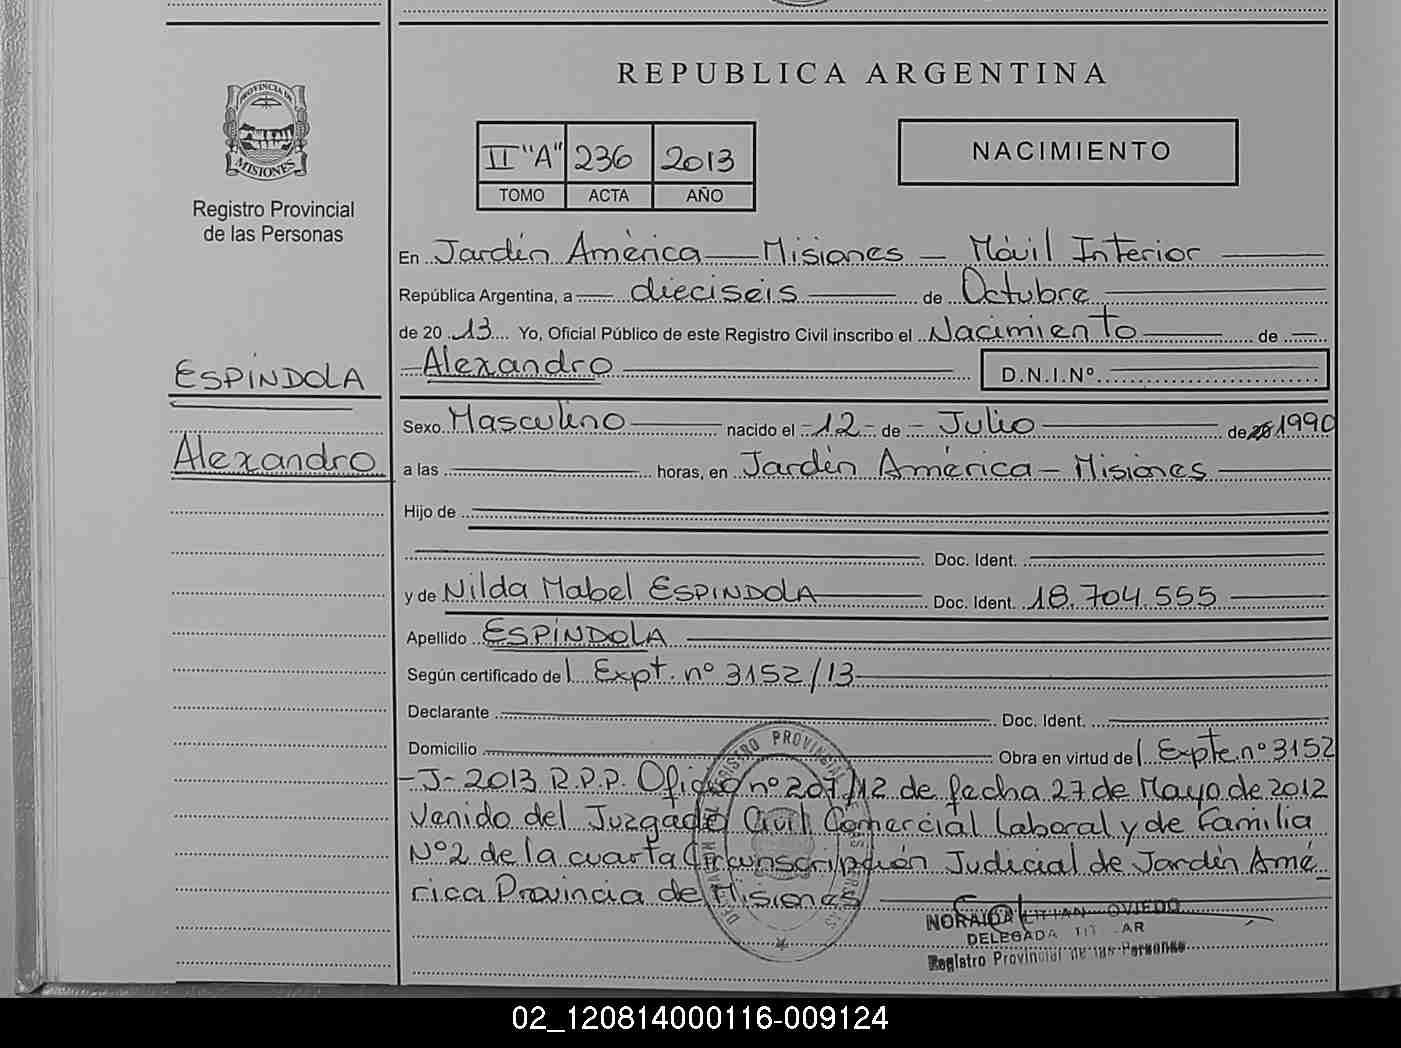 REPUBLICA ARGENTINA
PROVINCIA DE
MISIONES
Registro Provincial
de las Personas
II "A" 236 2013
TOMO ACTA AÑO
NACIMIENTO
En Jardín América — Misiones — Móvil Interior
República Argentina, a dieciseis de Octubre
de 20 13 Yo, Oficial Público de este Registro Civil inscribo el Nacimiento de
Alexandro D.N.I.Nº
ESPÍNDOLA
Alexandro
Sexo Masculino nacido el 12 de Julio de 1990
a las horas, en Jardín América — Misiones
Hijo de
Doc. Ident.
y de Nilda Mabel ESPINDOLA Doc. Ident. 18.704.555
Apellido ESPÍNDOLA
Según certificado de l Expt. nº 3152/13
Declarante Doc. Ident.
Domicilio Obra en virtud de l Expte. nº 3152
-J- 2013 R.P.P. Oficio nº 207/12 de fecha 27 de Mayo de 2012
Venido del Juzgado Civil Comercial Laboral y de Familia
Nº2 de la cuarta Circunscripción Judicial de Jardín Amé
rica Provincia de Misiones
NORAIDA LILIAN OVIEDO
DELEGADA TIT AR
Registro Provincial de las Personas
02_120814000116-009124